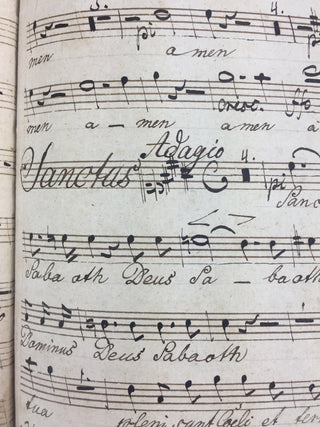 3. 4.
pi
men amen
cresc. ffo
men a - men amen a
Adagio
Sanctus 4. pi
Sanc
Sabaoth Deus Sa - baoth
Dominus Deus Sabaoth
tua pleni sunt Coeli et ter